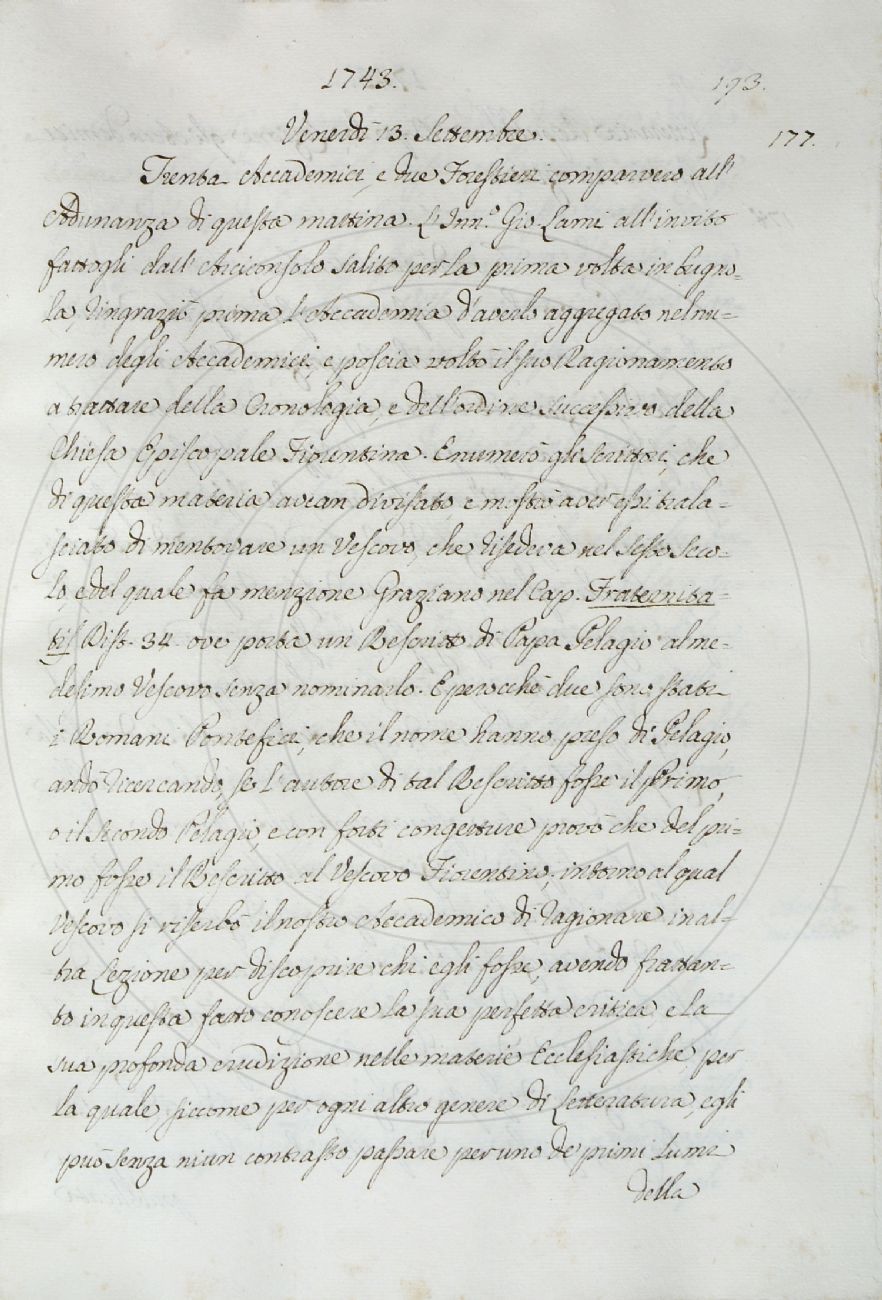 1743.
193.
Venerdì 13. Settembre.
177.
Trenta Accademici, e due Forestieri comparvero all'
Adunanza di questa mattina. L'Inn.º Gio. Lami all'invito
fattogli dall'Arciconsolo salito per la prima volta in bugno=
la, ringraziò prima l'Accademia d'averlo aggregato nel nu=
mero degli Accademici, e poscia voltò il suo Ragionamento
a trattare della Cronologia, e dell'ordine successivo della
Chiesa Episcopale Fiorentina. Enumerò gli scrittori, che
di questa materia avean divisato, e mostrò aver essi trala=
sciato di mentovare un Vescovo, che risedeva nel Sesto Seco=
lo, e del quale fa menzione Graziano nel Cap. Fraternita=
tis Dist. 34. ove porta un Rescritto di Papa Pelagio al me=
desimo Vescovo senza nominarlo. E perocchè due sono stati
i Romani Pontefici, che il nome hanno preso di Pelagio,
andò ricercando, se l'autore di tal Rescritto fosse il Primo,
o il Secondo Pelagio, e con forti congetture provò che del pri=
mo fosse il Rescritto al Vescovo Fiorentino; intorno al qual
Vescovo si riserbò il nostro Accademico di ragionare in al=
tra Lezione per discoprire chi egli fosse, avendo frattan=
to in questa fatto conoscere la sua perfetta critica, e la
sua profonda erudizione nelle materie Ecclesiastiche, per
la quale, siccome per ogni altro genere di Letteratura, egli
può senza niun contrasto passare per uno de' primi Lumi
della